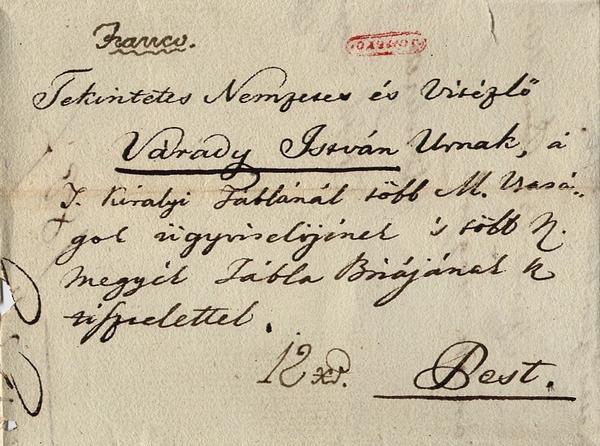 Franco.
Tekintetes Nemzetes és Vitézlő
Várady István Urnak, á
T. Királyi Táblánál több M. Urasá-
gok ügyviselőjének 's több N.
megyék Tábla Birájának
tisztelettel.
12 xr. Pest.